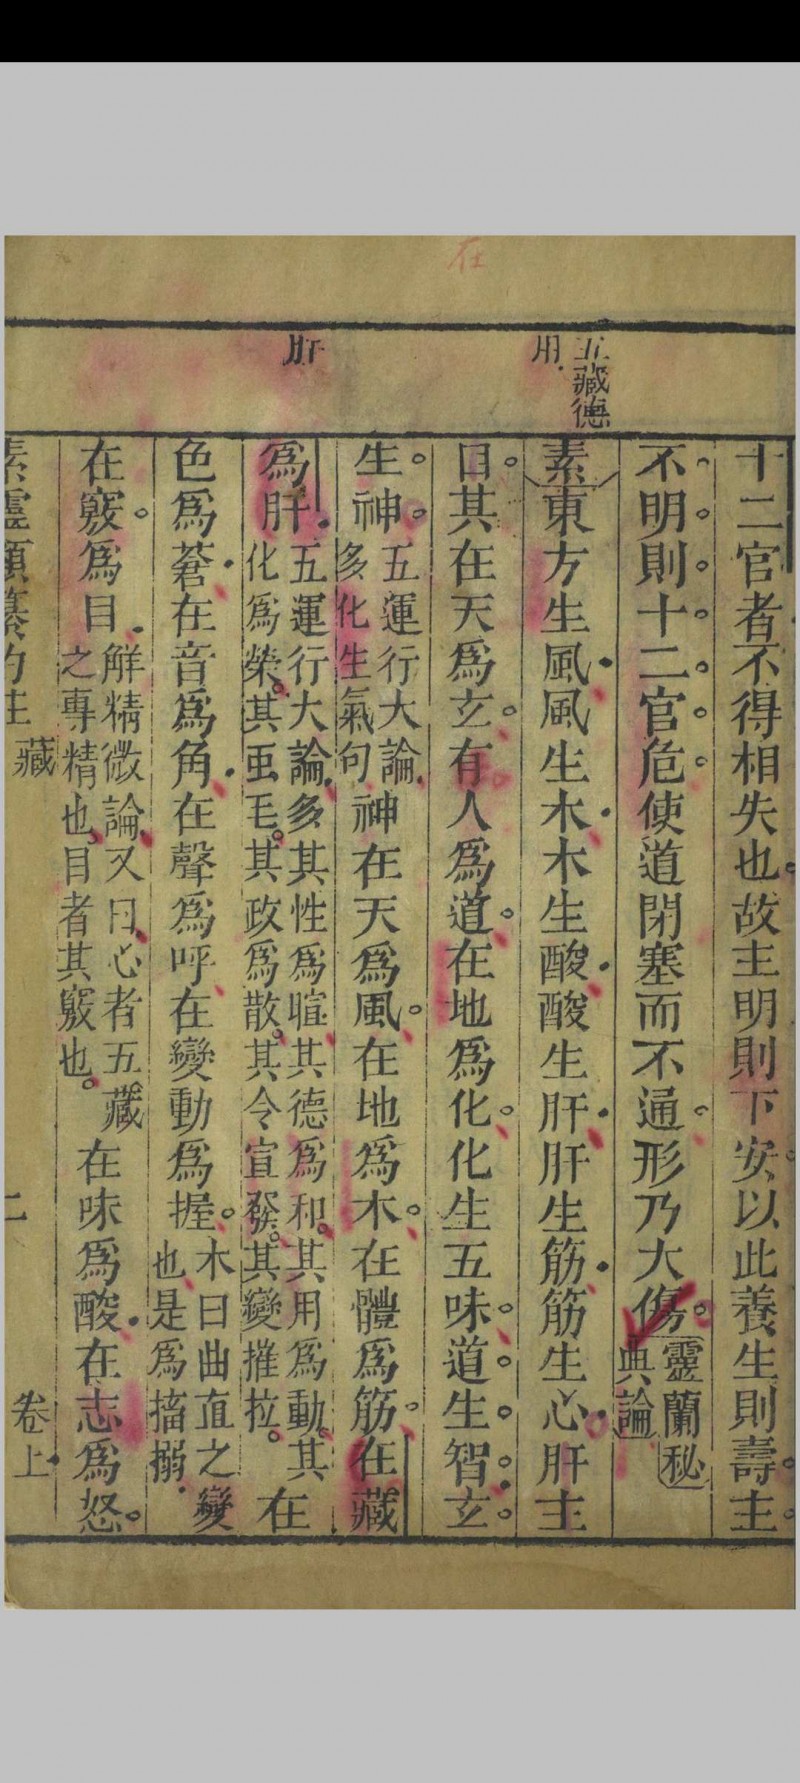 在
五藏德
用
肝
十二官者不得相失也故主明則下安以此養生則壽主
不明則十二官危使道閉塞而不通形乃大傷靈蘭秘
典論
素東方生風風生木木生酸酸生肝肝生筋筋生心肝主
目其在天爲玄有人爲道在地爲化化生五味道生智玄
生神五運行大論
多化生氣句神在天爲風在地爲木在體爲筋在藏
爲肝五運行大論多其性爲暄其德爲和其用爲動其
化爲榮其虽毛其政爲散其令宣發其變摧拉在
色爲蒼在音爲角在聲爲呼在變動爲握木曰曲直之變
也是爲搐搦
在竅爲目解精微論又曰心者五藏
之專精也目者其竅也在味爲酸在志爲怒
素靈類纂約註 藏 二 卷上